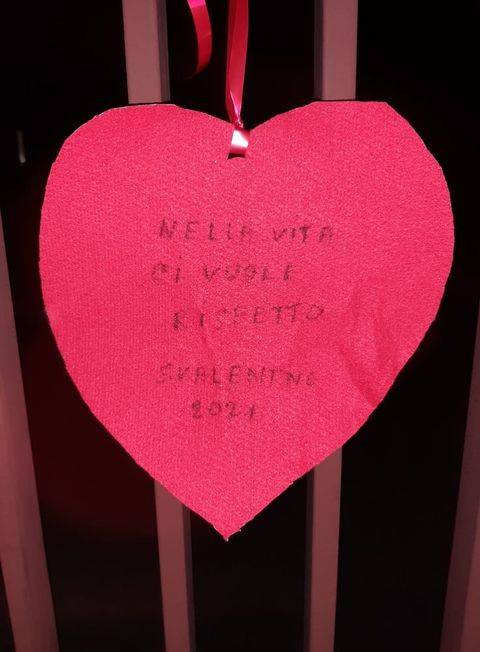 NELLA VITA
CI VUOLE
RISPETTO
S.VALENTINO
2021